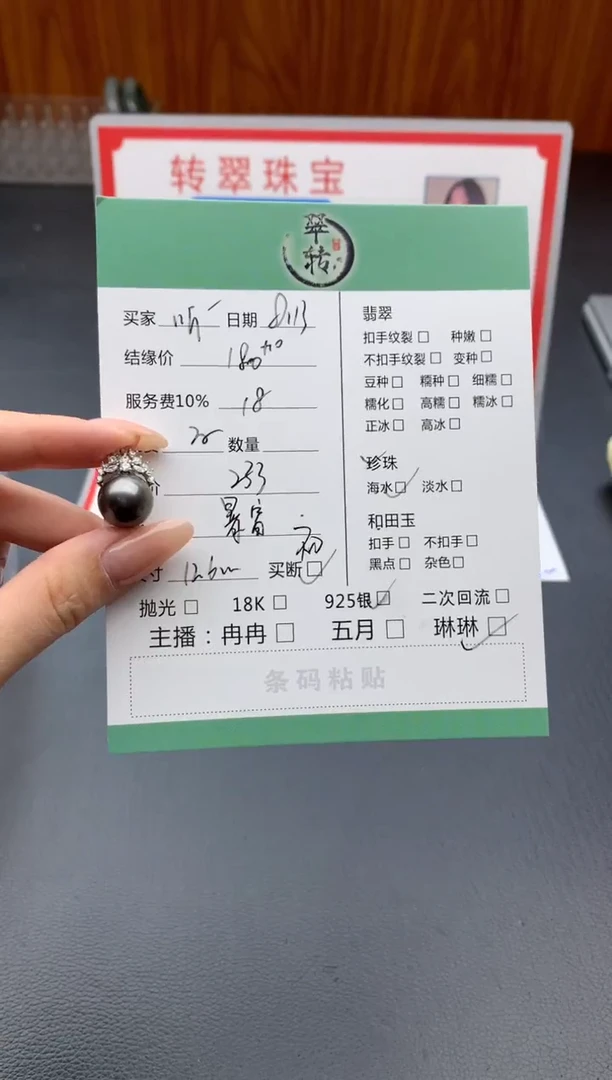 转翠珠宝
翠
转
买家 听 日期 8.13
结缘价 180 +10
服务费10% 18
数量
价 253
暴富
初
寸 12.6mm 买断☐
抛光☐ 18K☐ 925银☐ 二次回流☐
主播：冉冉☐ 五月☐ 琳琳☐
条码粘贴
翡翠
扣手纹裂☐ 种嫩☐
不扣手纹裂☐ 变种☐
豆种☐ 糯种☐ 细糯☐
糯化☐ 高糯☐ 糯冰☐
正冰☐ 高冰☐
珍珠
海水☐ 淡水☐
和田玉
扣手☐ 不扣手☐
黑点☐ 杂色☐